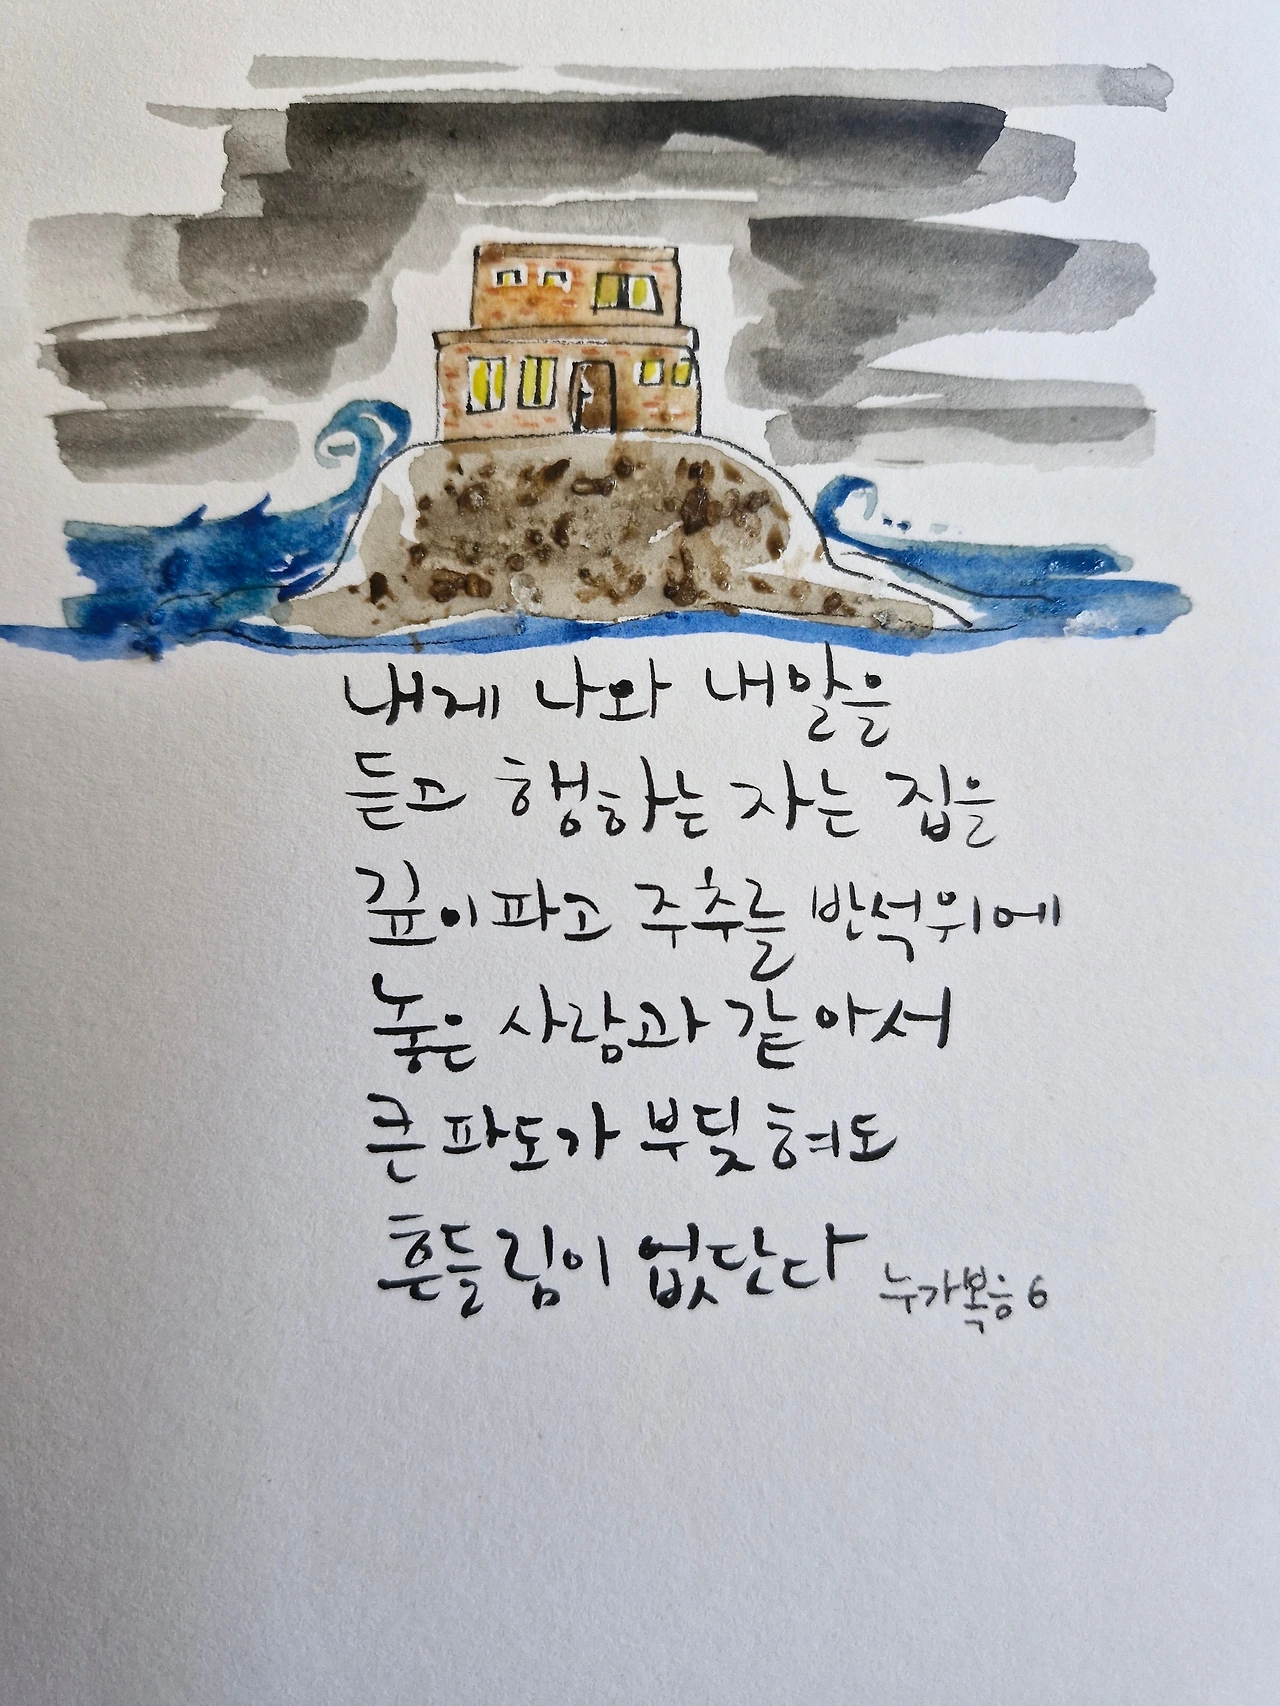 내게 나와 내 말을
듣고 행하는 자는 집을
깊이 파고 주추를 반석위에
놓은 사람과 같아서
큰 파도가 부딪혀도
흔들림이 없단다
누가복음 6